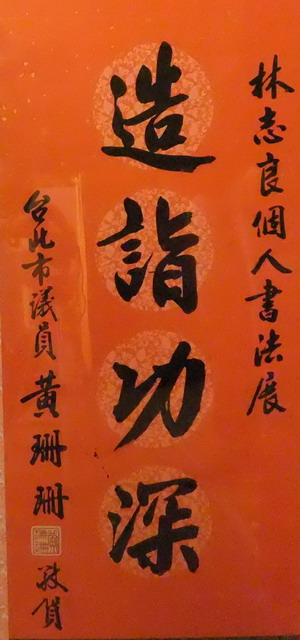 林志良個人書法展
造詣功深
台北市議員黃珊珊敬賀